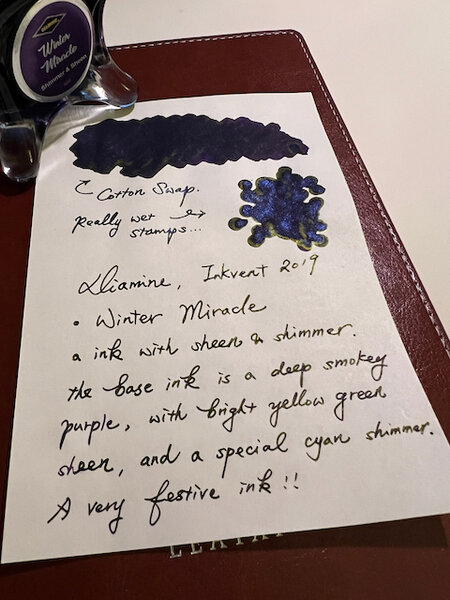 Winter
Miracle
Shimmer & Sheen
Cotton Swap.
Really wet
stamps...
Diamine, Inkvent 2019
• Winter Miracle
a ink with sheen & shimmer.
the base ink is a deep smokey
purple, with bright yellow green
sheen, and a special cyan shimmer.
A very festive ink!!